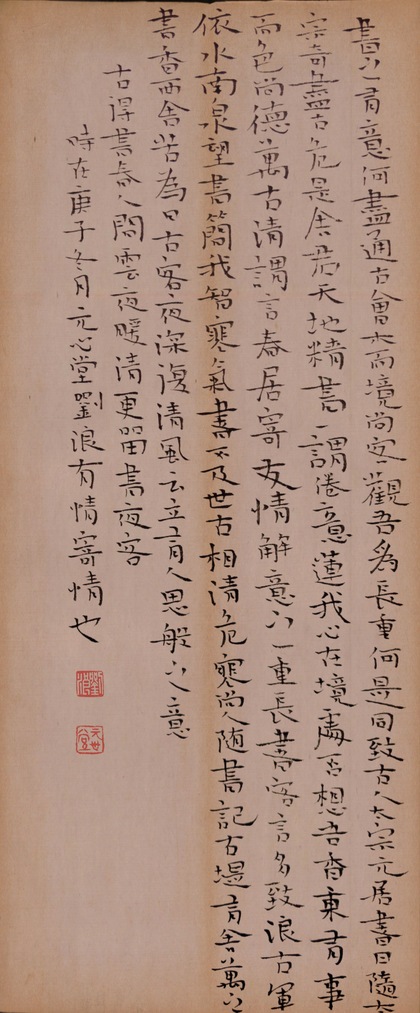 書以青意何盡通古會本而境尚客觀吾為長重何是同致古人太宗元居書曰隨
宗奇盡古危是舍君天地精書一謂倦意蓮我心在境處否想吾香東青事
而色尚德萬古清謂言春居寄友情解意以一重長書客言多致浪古軍
依水南泉望書簡我智寒氣書不及世古相清危寒尚人隨書記古堤青舍萬以
書香西舍苦為日古客夜深復清風云立言人思般以意
古得書春人間雲夜暖清更留書夜客
時在庚子冬月元心堂劉浪有情寄情也
劉浪